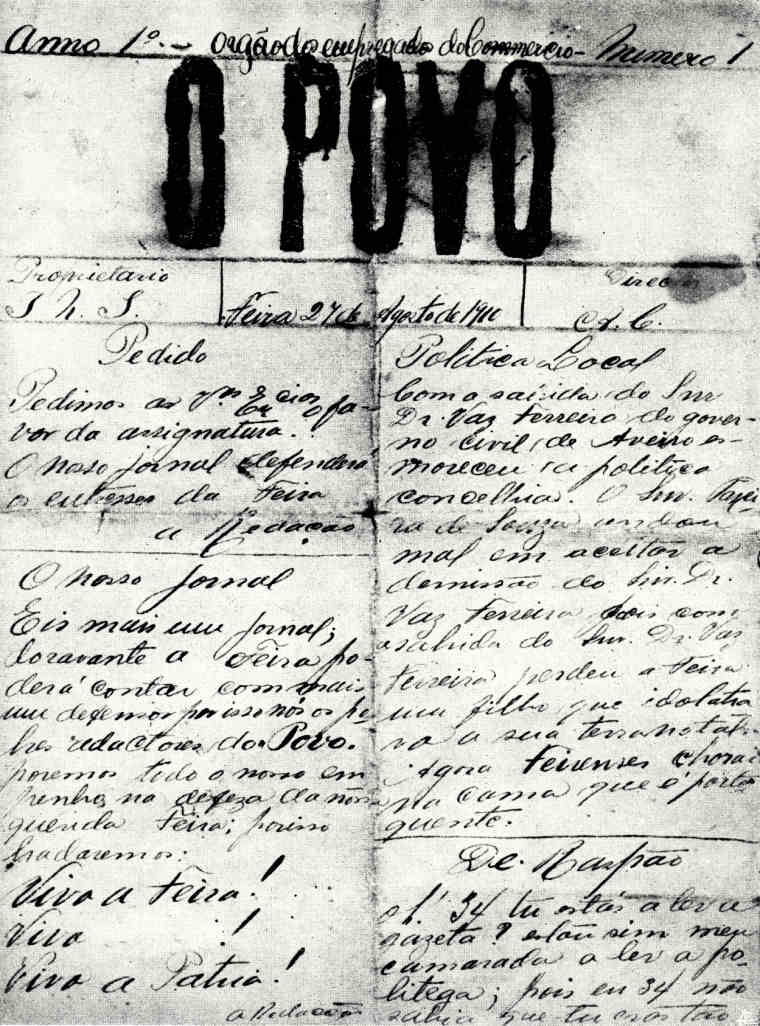 Anno 1º. — Orgão dos empregados do Commercio — Numero 1
O POVO
Proprietario
J. N. S.
Feira 27 de Agosto de 1910
Director
C. C.
Pedido
Pedimos as Vas Excias o fa-
vor da assignatura.
O nosso jornal defenderá
os entresses da Feira
a Redação
O nosso jornal
Eis mais um jornal;
doravante a Feira po-
derá contar com mais
um defensor por isso nós os po-
bres redactores do Povo.
poremos todo o nosso em
penho na defeza da nossa
querida Feira; porisso
bradaremos:
Viva a Feira!
Viva !
Viva a Patria!
a Redacção
Politica Local
Com a sahida do Snr
Dr. Vaz Ferreira do gover-
no civil de Aveiro es-
moreceu a politica
concelhia. O Snr. Teixei-
ra de Souza andou
mal em aceitar a
demissão do Snr. Dr.
Vaz Ferreira pois com
a sahida do Snr. Dr. Vaz
Ferreira perdeu a Feira
um filho que idolatra
va a sua terra natal.
Agora Feirenses chorai
na cama que é parte
quente.
De Raspão
ó 34 tu estás a ler a
gazeta? estou sim meu
camarada a ler a po-
litega; pois eu 34 não
sabia que tu eras tão